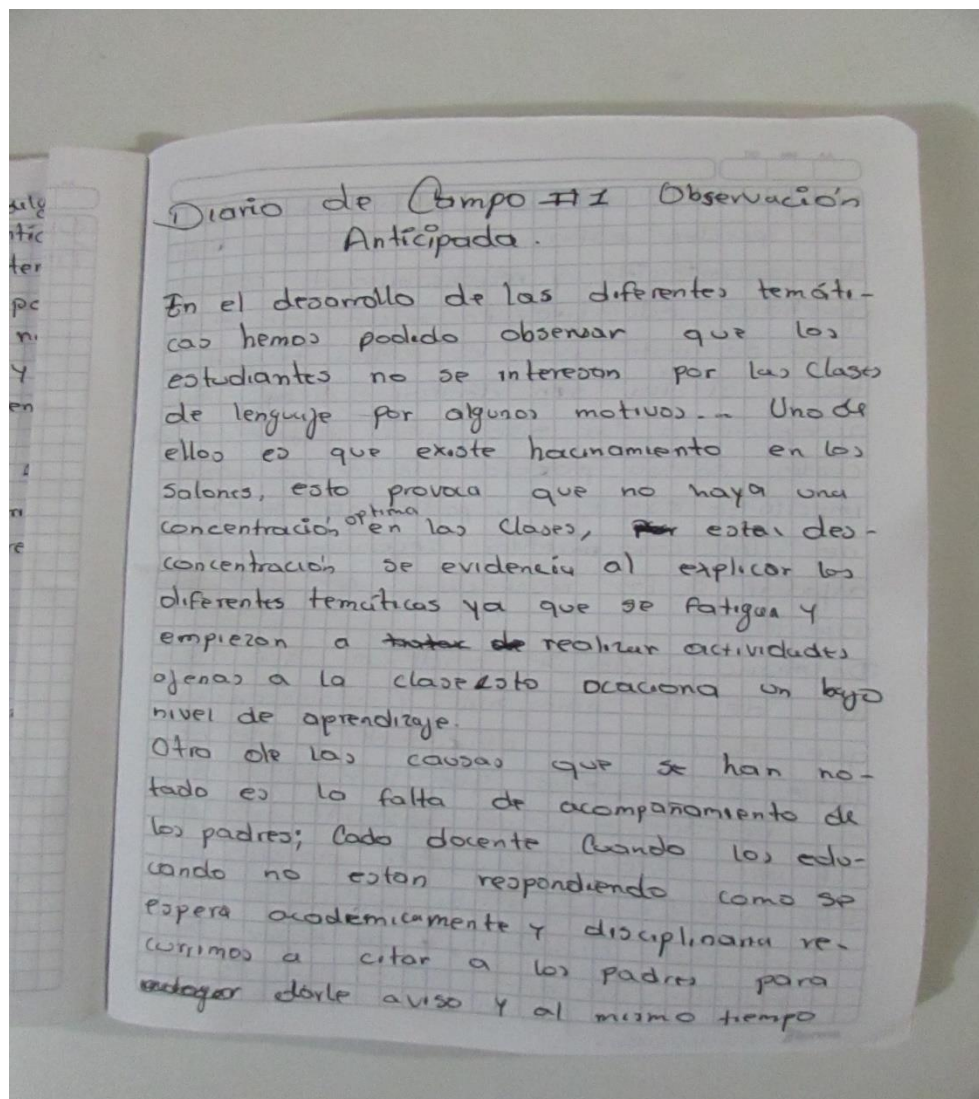 Diario de Campo #1 Observación
Anticipada.
En el desarrollo de las diferentes temáti-
cas hemos podido observar que los
estudiantes no se interesan por las clases
de lenguje por algunos motivos... Uno de
ellos es que existe hacinamiento en los
salones, esto provoca que no haya una
concentración optima en las clases, esta des-
concentración se evidencia al explicar las
diferentes temáticas ya que se fatigan y
empiezan a realizar actividades
ajenas a la clase esto ocaciona un bajo
nivel de aprendizaje.
Otra de las causas que se han no-
tado es la falta de acompañamiento de
los padres; Cada docente Cuando los edu-
cando no estan respondiendo como se
espera académicamente y disciplinaria re-
currimos a citar a los padres para
darle aviso y al mismo tiempo